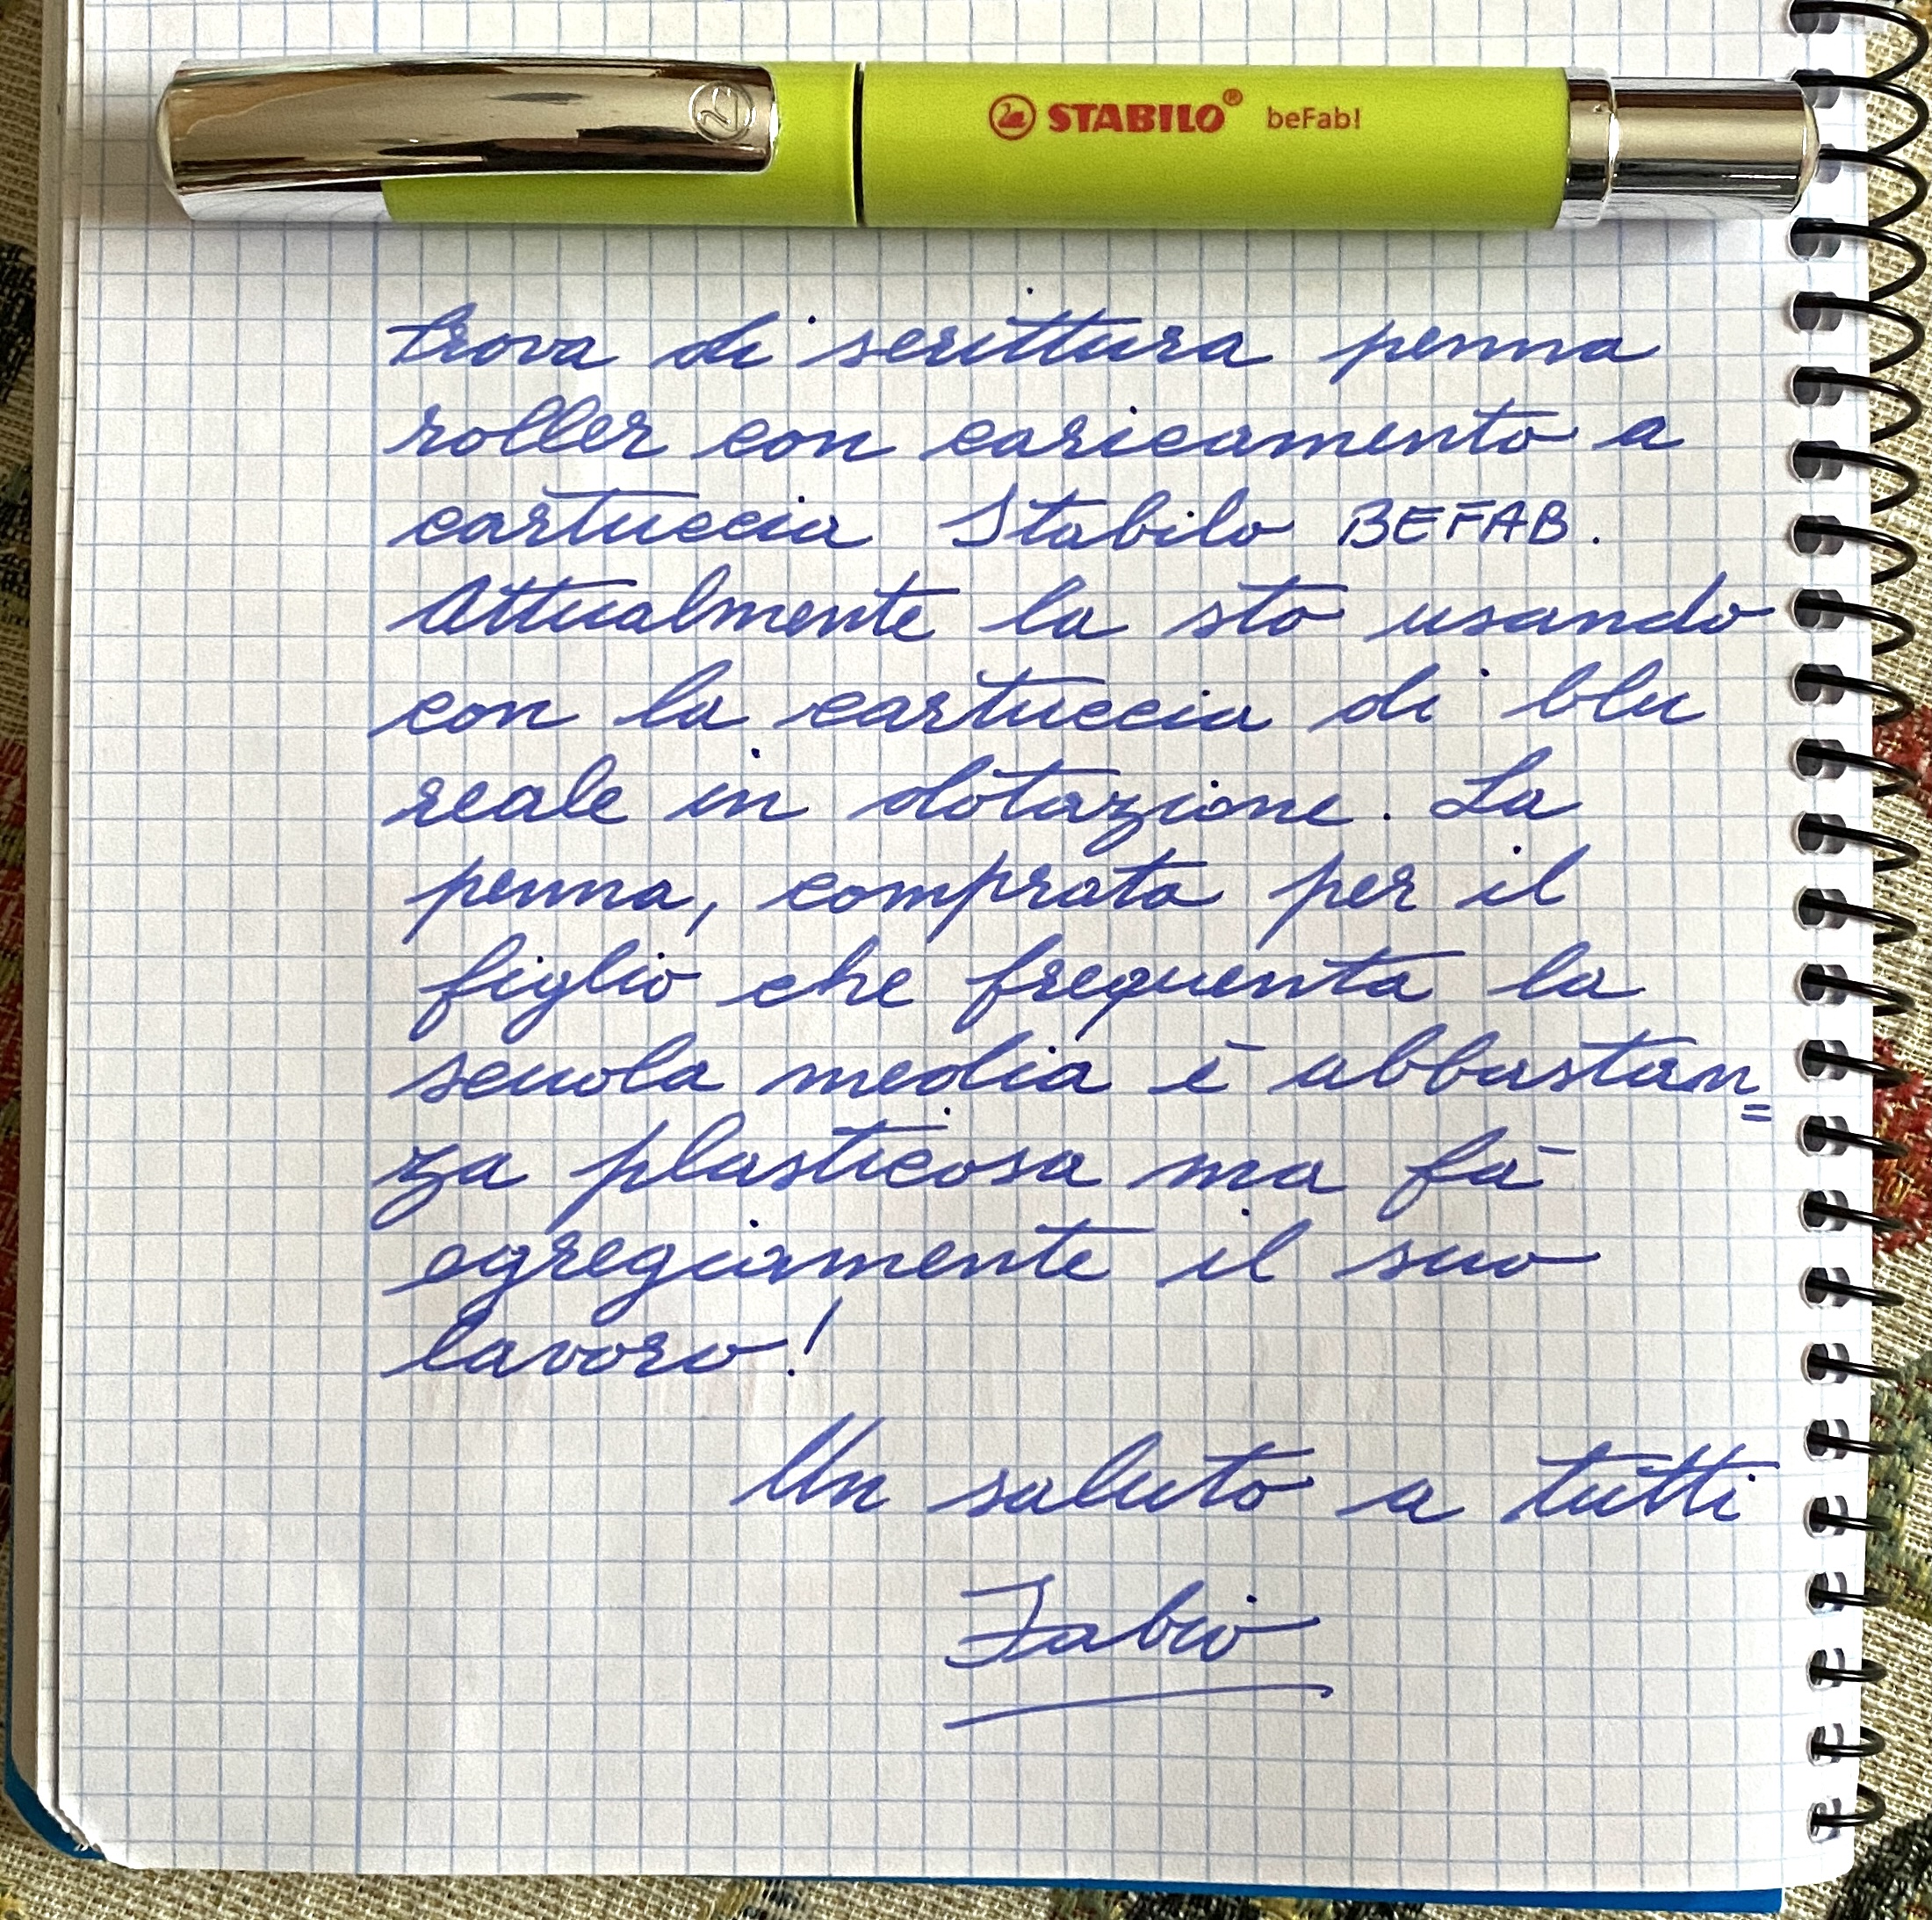 STABILO® beFab!
Prova di scrittura penna
roller con caricamento a
cartuccia Stabilo BEFAB.
Attualmente la sto usando
con la cartuccia di blu
reale in dotazione. La
penna, comprata per il
figlio che frequenta la
scuola media è abbastan=
za plasticosa ma fà
egregiamente il suo
lavoro!
Un saluto a tutti
Fabio